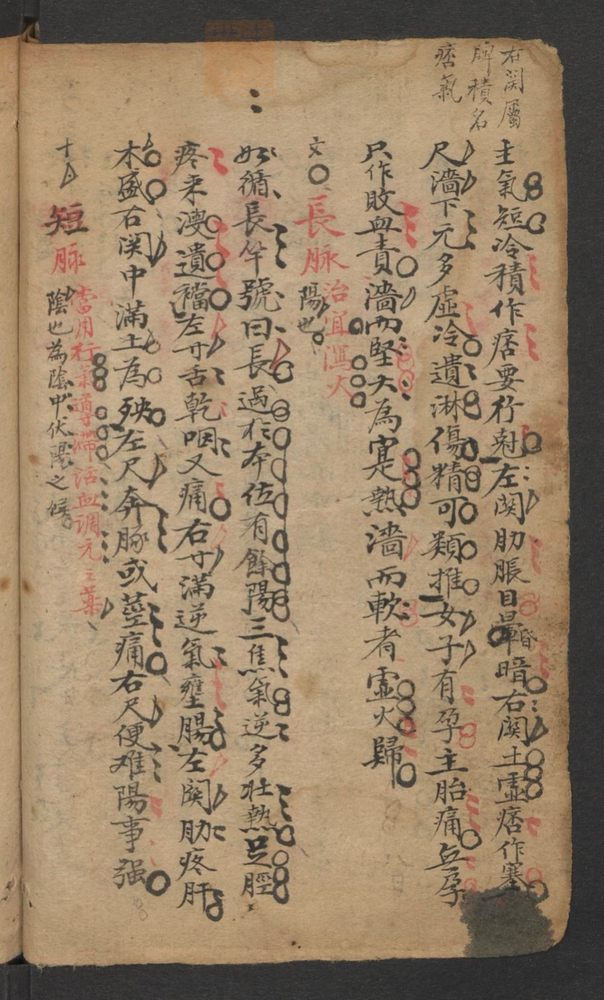 右関屬
脾積名
痞氣
主氣短冷積作痞要行剋左関肋脹目暈昏暗右関土虛痞作塞
尺濇下元多虛冷遺淋傷精可類推女子有孕主胎痛無孕
只作敗血責濇而堅大為寔熱濇而軟者虛火歸
長脉治宜瀉火
陽也
如循長竿號曰長過於本位有餘陽三焦氣逆多壯熱足脛
疼来溲遺襠左寸舌乾咽又痛右寸滿逆氣壅腸左関肋疼肝
木盛右関中滿土為殃左尺奔豚或莖痛右尺便难陽事强
十
短脉
當用行氣導滯活血調元之藥
陰也為陰中伏陽之候